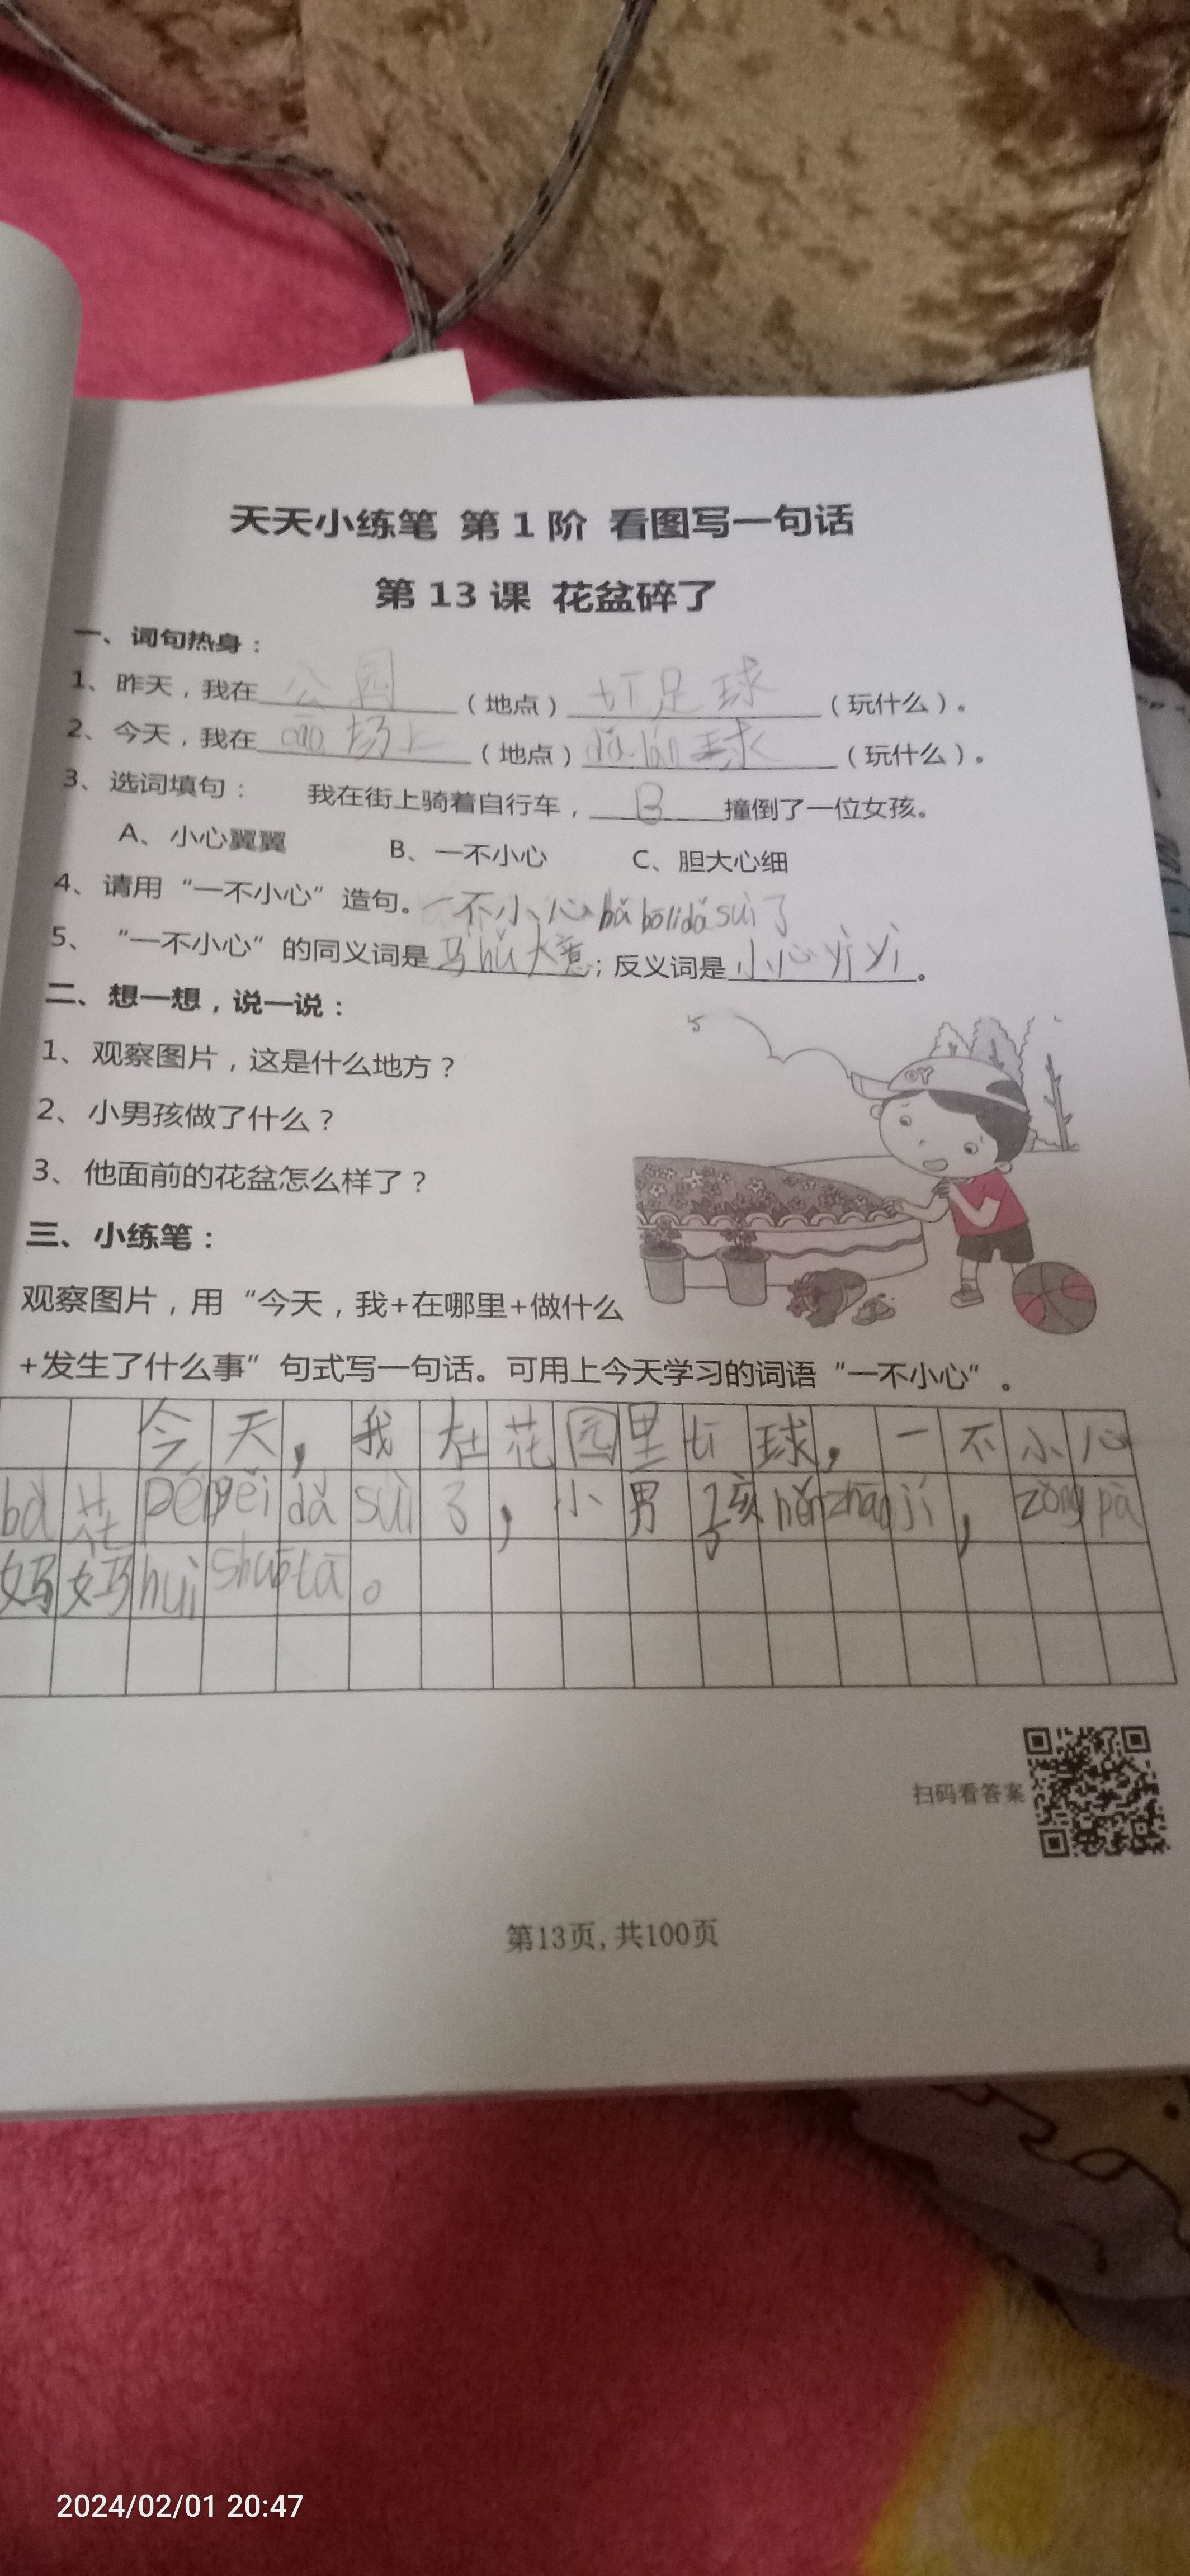 天天小练笔 第 1 阶 看图写一句话
第 13 课 花盆碎了
一、词句热身：
1、昨天，我在 公园 （地点） 打足球 （玩什么）。
2、今天，我在 cāo场上 （地点） dǎ lán球 （玩什么）。
3、选词填句： 我在街上骑着自行车， B 撞倒了一位女孩。
A、小心翼翼 B、一不小心 C、胆大心细
4、请用“一不小心”造句。一不小心bǎ bōlidǎ suì了
5、“一不小心”的同义词是 马hǔ大意 ；反义词是 小心yìyì 。
二、想一想，说一说：
1、观察图片，这是什么地方？
2、小男孩做了什么？
OY
3、他面前的花盆怎么样了？
三、小练笔：
观察图片，用“今天，我+在哪里+做什么
+发生了什么事”句式写一句话。可用上今天学习的词语“一不小心”。
今天，我在花园里打球，一不小心
bǎ花 dǎ suì了，小男孩hěnzháojí， pà
妈妈huì shuōtā。
扫码看答案
第13页，共100页
2024/02/01 20:47